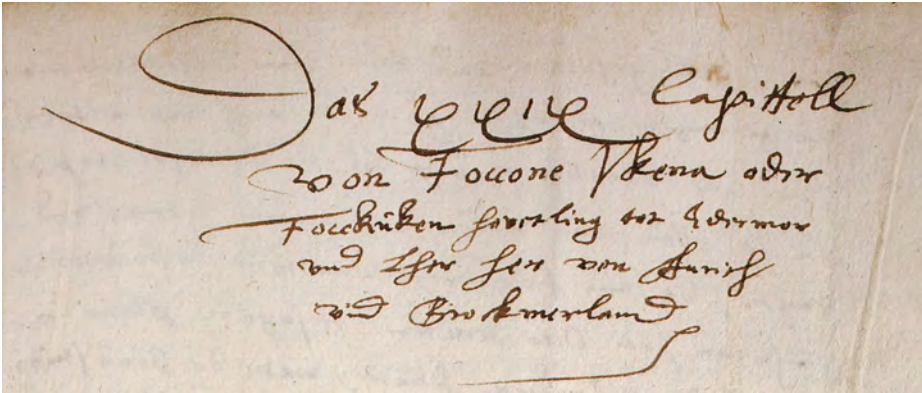 Das XXIX Capittell
von Foccone Vkena oder
Fockuken hevetling tot Edermor
vnd Lher her von Aurich
vnd Brockmerland